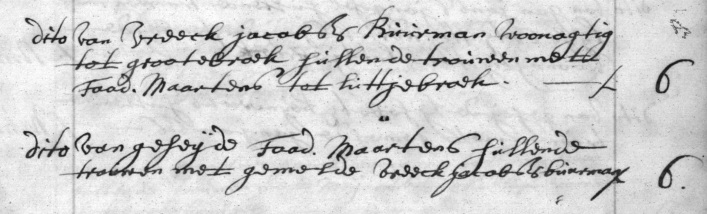 dito van Vreeck jacobsz Buurman woonagtig
tot grootebroek sullende trouwen mett
Taad. Maartens tot luttjebroek. — f 6
dito van geseyde Taad. Maartens sullende
trouwen met gemelde Vreeck jacobsz buurman f 6.